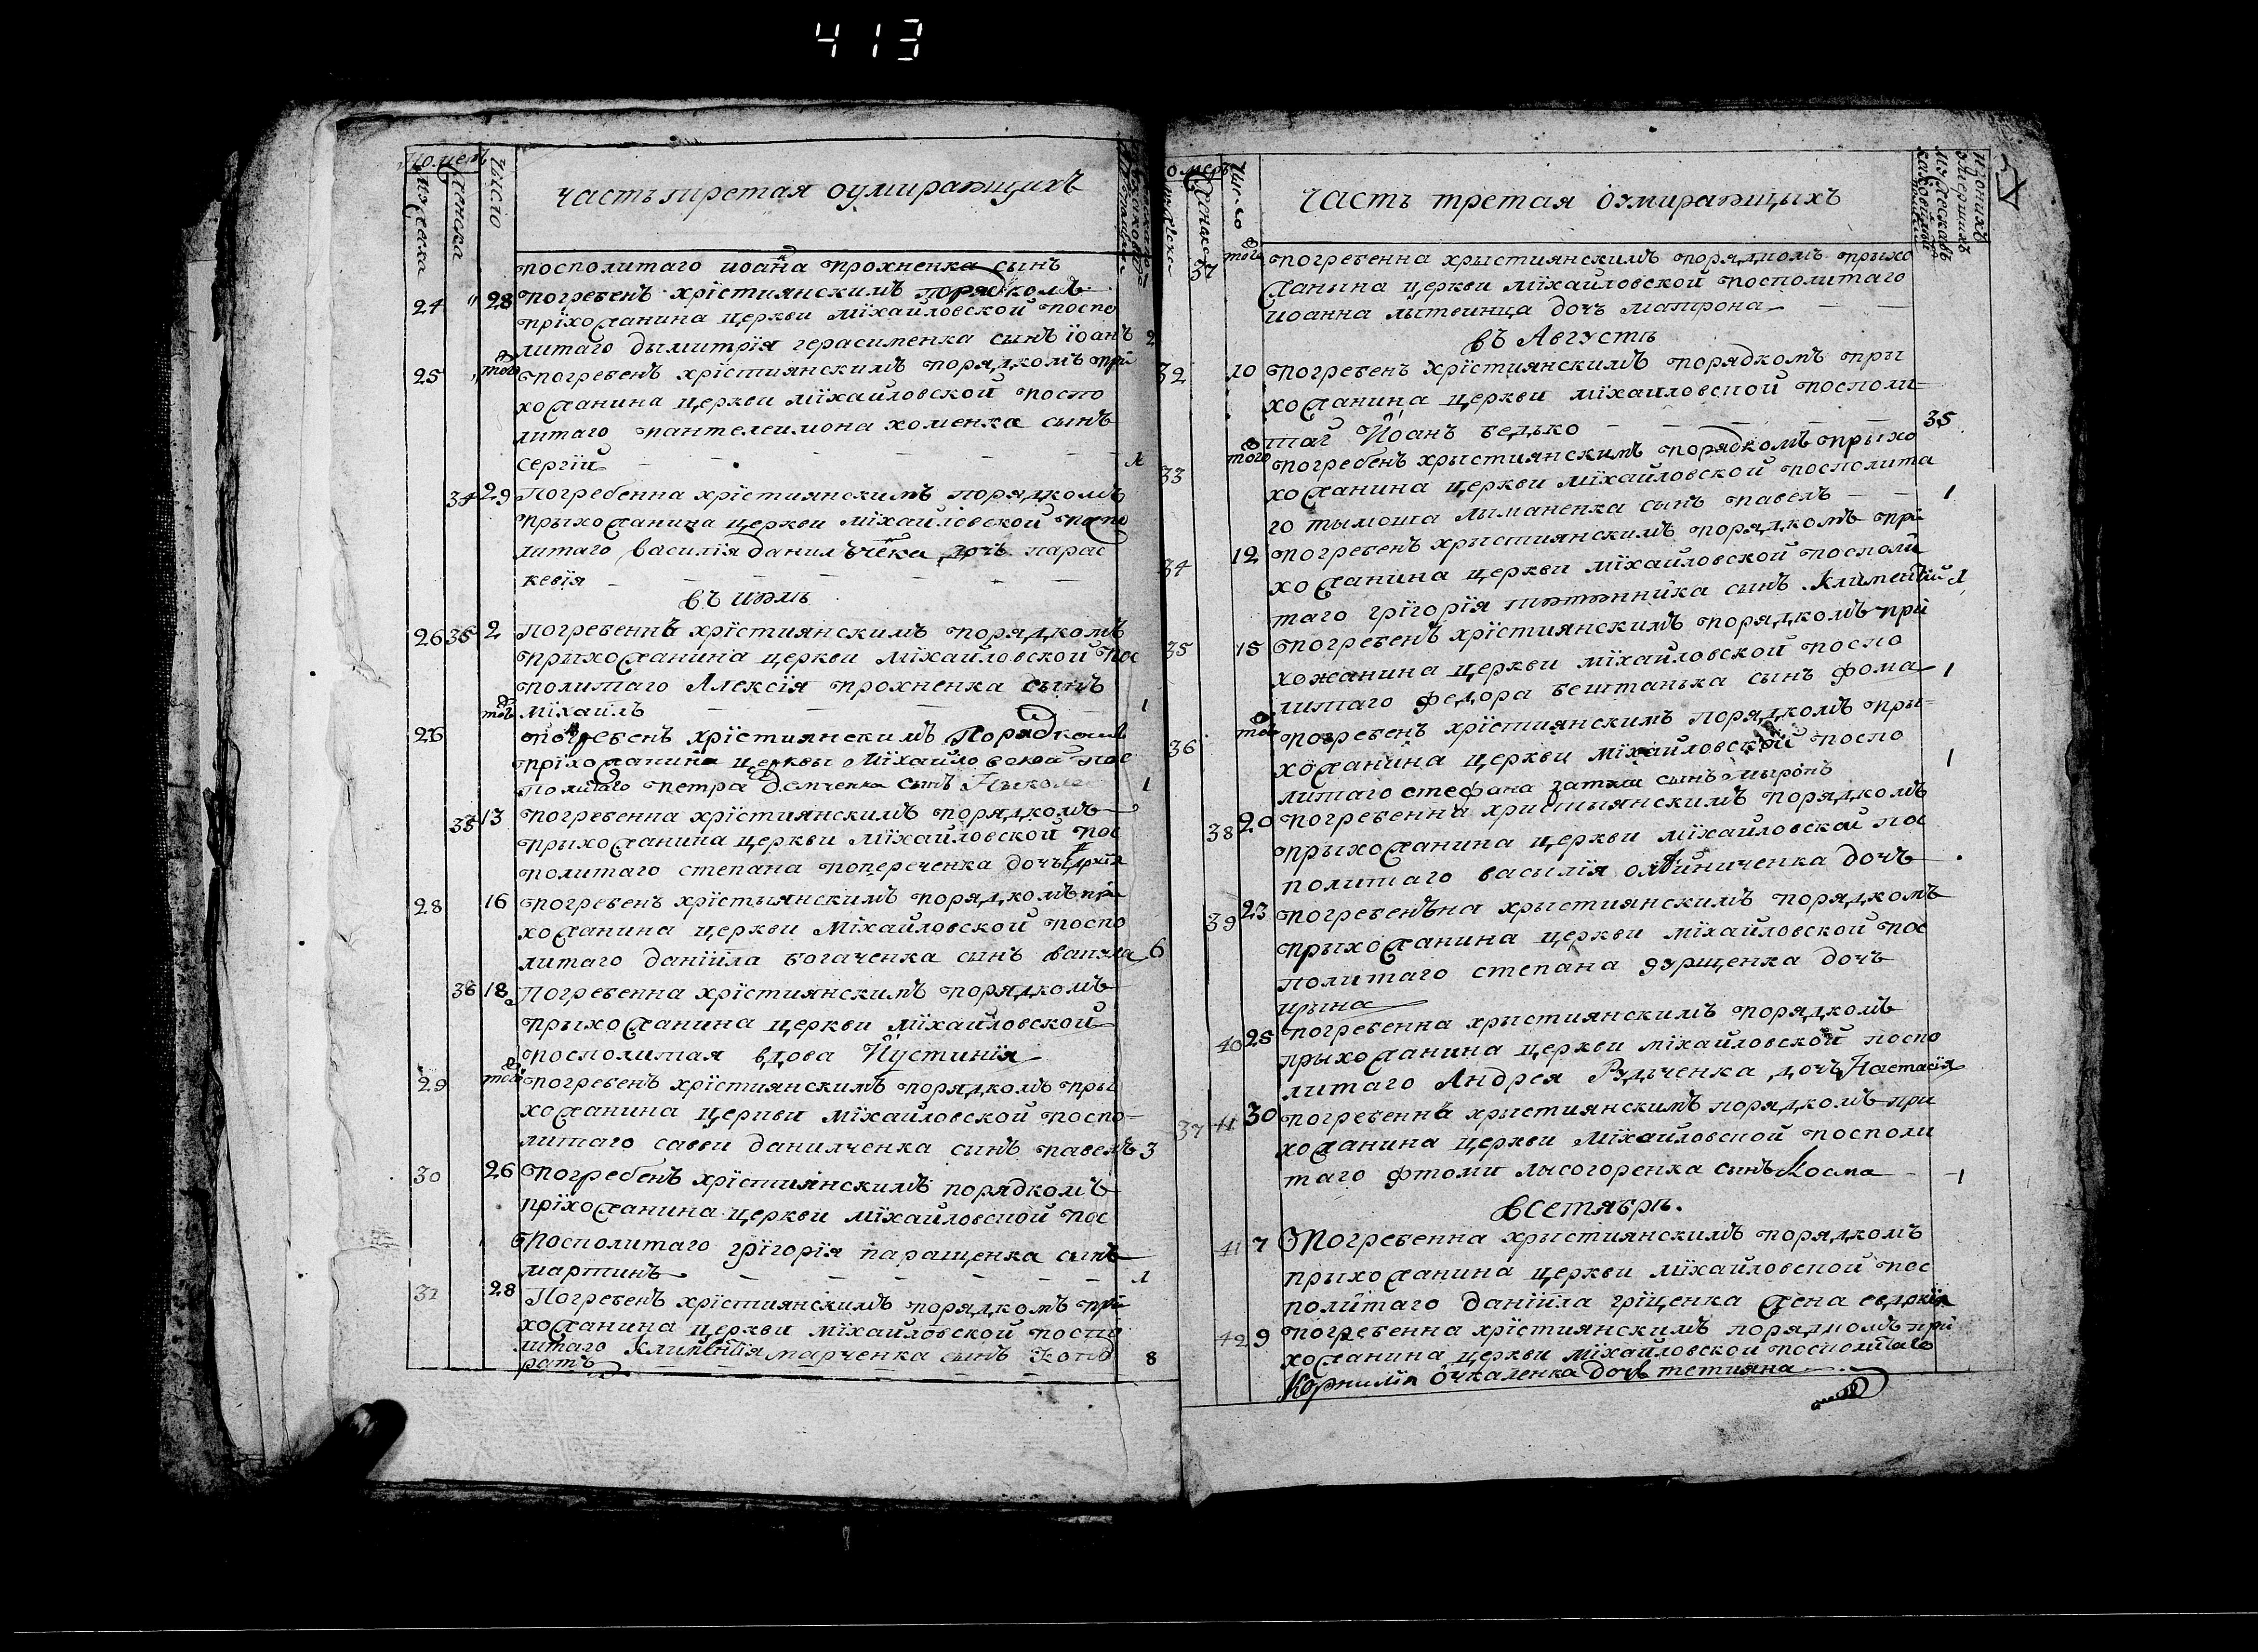 413
Номеръ
Мужеска
Женска
Число
часть третая оумирающихъ
посполитаго иоанна прохненка сынъ
24 " 28 погребенъ хрїстиянскимъ порядкомъ
прїхожанина церкви мїхаиловской поспо
литаго дымитрїя герасименка сынъ їоанъ 2
25 " того погребенъ хрїстиянскимъ порядкомъ при
хожанина церкви мїхаиловской поспо
литаго пантелеимона хоменка сынъ
сергїй 1
34 29 Погребенна хрїстиянскимъ порядкомъ
прыхожанина церкви мїхайловской поспо
литаго василїя данилъчека дочъ парас
кевїя
въ июль
26 35 2 Погребеннъ хрїстиянскимъ порядкомъ
прыхожанина церкви мїхаиловской пос
политаго Алексїя прохненка сынъ
того мїхаилъ 1
26 погребенъ хрїстиянскимъ Порядкомъ
прїхожанина церквы Мїхайловской пос
политаго петра Демченка сынъ Ныкола 1
35 13 погребенна хрїстиянскимъ порядкомъ
прыхожанина церкви Мїхайловской пос
политаго степана попереченка дочъ
28 16 погребенъ хрїстыянскимъ порядкомъ при
хожанина церкви Мїхайловской поспо
литаго данїила богаченка сынъ 6
36 18 Погребенна хрїстиянскимъ порядкомъ
прыхожанина церкви мїхайловской
посполитая вдова Иустинїя
29 того погребенъ хрїстиянскимъ порядкомъ пры
хожанина церкви мїхайловской поспо-
литаго саввы данилченка сынъ павелъ 3
30 26 Погребенъ хрїстиянскимъ порядкомъ
прїхожанина церкви мїхайловской пос
посполитаго грїгорїя паращенка сынъ
мартинъ 1
31 28 Погребенъ хрїстиянскимъ порядкомъ при
хожанина церкви мїхайловской поспо
литаго Климентїя марченка сынъ Конд
ратъ 8
Номеръ
Мужеска
Женска
Число
часть третая оумирающыхъ
37 того погребенна хрыстиянскимъ порядкомъ прыхо
жанина церкви мїхайловской посполитаго
иоанна лытвинца дочъ матрона
въ Августъ
32 10 погребенъ хрїстиянскимъ порядкомъ пры
хожанина церкви мїхайловской посполи-
таг Иоанъ бедько 35
33 того погребенъ хрыстиянскимъ порядкомъ прыхо
хожанина церкви мїхайловской посполита
го тымоша лыманенка сынъ павелъ 1
34 12 погребенъ хрыстиянскимъ порядкомъ при
хожанина церкви мїхайловской посполи
таго грїгорїя тютюнника сынъ Климентїй 1
35 15 погребенъ хрїстиянскимъ порядкомъ при
хожанина церкви мїхайловской поспо
литаго федора бештанька сынъ фома 1
36 того погребенъ хрїстиянскимъ порядкомъ пры-
хожанина церкви мїхайловской поспо
литаго стефана затки сынъ мыронъ 1
38 20 погребенна христыянскимъ порядкомъ
прыхожанина церкви мїхайловской пос
политаго василїя олѣйниченка дочъ
39 23 погребенъна хрыстиянскимъ порядкомъ
прыхожанина церкви мїхайловской пос
политаго степана дурщенка дочъ
ирына
40 25 погребенна християнскимъ порядкомъ
прыхожанина церкви мїхайловской поспо
литаго Андрея Рудьченка дочъ Настасїя
37 41 30 погребеннъ християнскимъ порядкомъ при
хожанина церкви мїхайловской посполи
таго фтоми лысогоренка сынъ Косма 1
всетябръ.
41 7 Погребенна християнскимъ порядкомъ
прыхожанина церкви мїхайловской пос
политаго данїила грїценка жена евдокїя
42 9 погребенна хрїстиянскимъ порядкомъ при
хожанина церкви мїхайловской посполитаго
Корнилїя Очкаленка дочъ тетияна